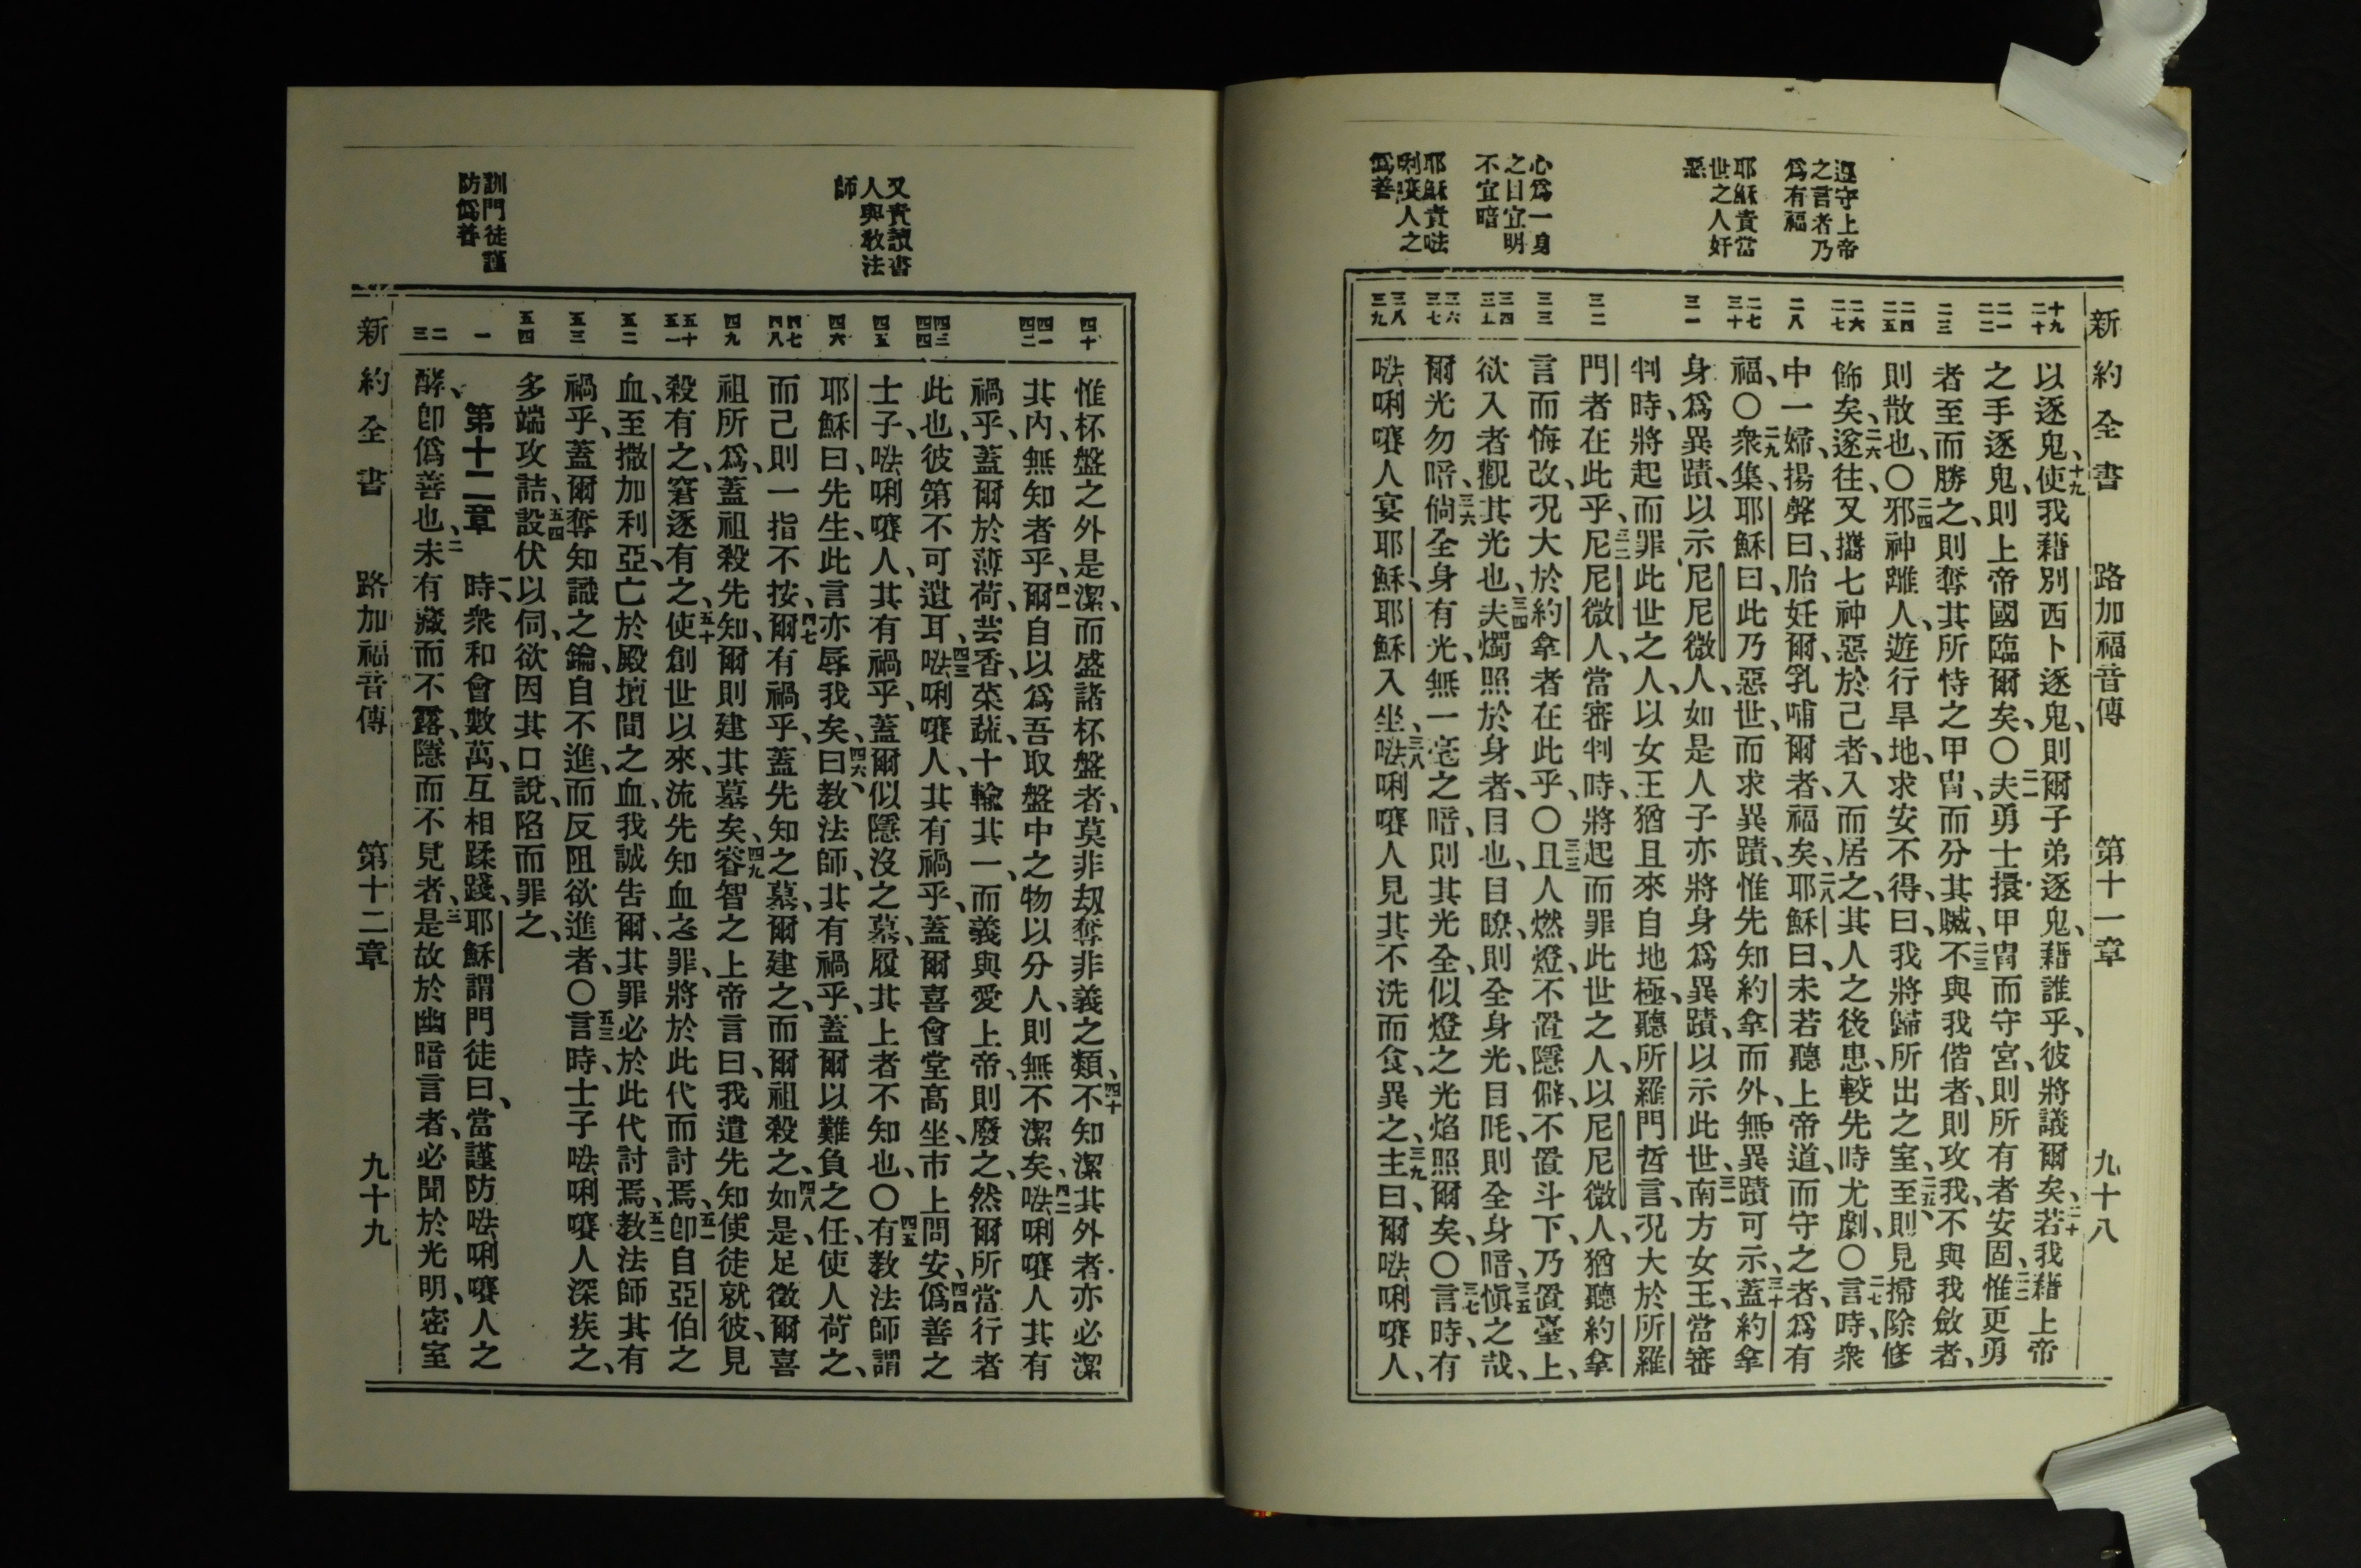 新約全書 路加福音傳 第十一章 九十八
遵守上帝
之言者乃
爲有福
耶穌責當
世之人奸
惡
心爲一身
之目宜明
不宜暗
耶穌責㗁
唎㘔人之
僞善
十九 二十
二一 二二
二三
二四 二五
二六 二七
二八
二九 三十
三一
三二
三三
三四 三五
三六 三七
三八 三九
以逐鬼、十九使我藉別西卜逐鬼、則爾子弟逐鬼、藉誰乎、彼將議爾矣、二十若我藉上帝
之手逐鬼、則上帝國臨爾矣、〇二一夫勇士擐甲冑而守宮、則所有者安固、二二惟更勇
者至而勝之、則奪其所恃之甲冑、而分其贓、二三不與我偕者、則攻我、不與我斂者、
則散也、〇二四邪神離人、遊行旱地、求安不得、曰、我將歸所出之室、二五至則見掃除修
飾矣、二六遂往、又攜七神惡於己者、入而居之、其人之後患、較先時尤劇、〇二七言時、衆
中一婦、揚聲曰、胎妊爾、乳哺爾者、福矣、二八耶穌曰、未若聽上帝道、而守之者、爲有
福、〇二九衆集、耶穌曰、此乃惡世、而求異蹟、惟先知約拿而外、無異蹟可示、三十蓋約拿
身爲異蹟、以示尼尼微人、如是人子亦將身爲異蹟、以示此世、三一南方女王、當審
判時、將起而罪此世之人、以女王猶且來自地極、聽所羅門哲言、況大於所羅
門者在此乎、三二尼尼微人、當審判時、將起而罪此世之人、以尼尼微人、猶聽約拿
言而悔改、況大於約拿者在此乎、〇三三且人燃燈、不置隱僻、不置斗下、乃置臺上、
欲入者觀其光也、三四夫燭照於身者、目也、目瞭、則全身光、目眊、則全身暗、三五愼之哉、
爾光勿暗、三六倘全身有光、無一毫之暗、則其光全、似燈之光焰照爾矣、〇三七言時、有
㗁唎㘔人宴耶穌、耶穌入坐、三八㗁唎㘔人見其不洗而食、異之、三九主曰、爾㗁唎㘔人、
又責讀書
人與敎法
師
訓門徒謹
防僞善
四十
四一 四二
四三 四四
四五
四六
四七 四八
四九
五十 五一
五二
五三
五四
一
二 三
惟杯盤之外是潔、而盛諸杯盤者、莫非刼奪非義之類、四十不知潔其外者亦必潔
其內、無知者乎、四一爾自以爲吾取盤中之物以分人、則無不潔矣、四二㗁唎㘔人其有
禍乎、蓋爾於薄荷、芸香、菜蔬、十輸其一、而義與愛上帝、則廢之、然爾所當行者
此也、彼第不可遺耳、四三㗁唎㘔人、其有禍乎、蓋爾喜會堂高坐、市上問安、四四僞善之
士子、㗁唎㘔人、其有禍乎、蓋爾似隱沒之墓、履其上者不知也、〇四五有敎法師謂
耶穌曰、先生、此言亦辱我矣、四六曰、敎法師、其有禍乎、蓋爾以難負之任、使人荷之、
而己則一指不按、四七爾有禍乎、蓋先知之墓、爾建之、而爾祖殺之、四八如是、足徵爾喜
祖所爲、蓋祖殺先知、爾則建其墓矣、四九睿智之上帝言曰、我遣先知使徒就彼、見
殺有之、窘逐有之、五十使創世以來、流先知血之罪、將於此代而討焉、五一卽自亞伯之
血、至撒加利亞亡於殿壇間之血、我誠吿爾、其罪必於此代討焉、五二敎法師其有
禍乎、蓋爾奪知識之鑰、自不進、而反阻欲進者、〇五三言時、士子㗁唎㘔人深疾之、
多端攻詰、五四設伏以伺、欲因其口說、陷而罪之、
第十二章 一時衆和會數萬、互相蹂踐、耶穌謂門徒曰、當謹防㗁唎㘔人之
酵、卽僞善也、二未有藏而不露、隱而不見者、三是故於幽暗言者、必聞於光明、密室
新約全書 路加福音傳 第十二章 九十九